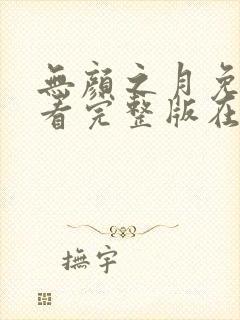 無顏之月免
看完整版在
撫宇